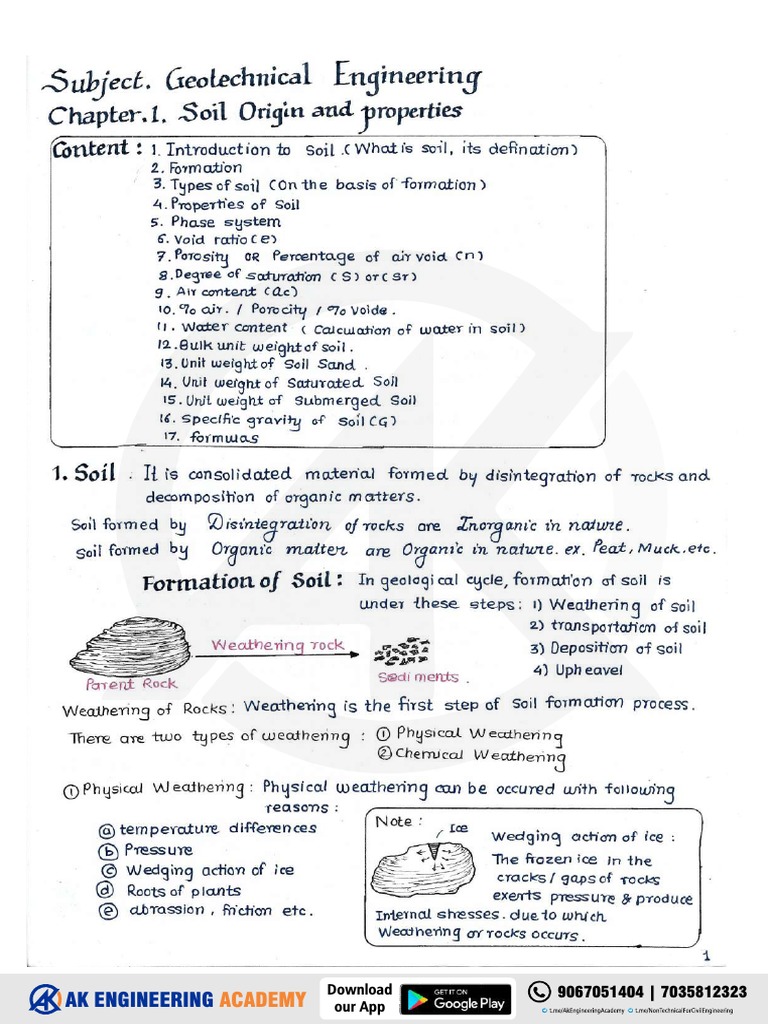 Subject. Geotechnical Engineering
Chapter.1. Soil Origin and properties
Content : 1. Introduction to Soil. (What is soil, its defination)
2. Formation
3. Types of soil (On the basis of formation)
4. Properties of Soil
5. Phase system
6. Void ratio (e)
7. Porosity OR Percentage of air void (n)
8. Degree of saturation (S) or (Sr)
9. Air content (ac)
10. % air. / Porocity / % Voids.
11. Water content ( Calculation of water in soil)
12. Bulk unit weight of soil.
13. Unit weight of Soil Sand .
14. Unit weight of Saturated Soil
15. Unit weight of Submerged Soil
16. Specific gravity of Soil (G)
17. formulas
1. Soil . It is consolidated material formed by disintegration of rocks and
decomposition of organic matters.
Soil formed by Disintegration of rocks are Inorganic in nature.
Soil formed by Organic matter are Organic in nature. ex. Peat, Muck. etc.
Formation of Soil : In geological cycle, formation of soil is
under these steps : 1) Weathering of soil
2) transportation of soil
3) Deposition of soil
4) Upheavel
Weathering rock
Parent Rock
Sediments .
Weathering of Rocks : Weathering is the first step of Soil formation process.
There are two types of weathering : ① Physical Weathering
② Chemical Weathering
① Physical Weathering : Physical weathering can be occured with following
reasons :
ⓐ temperature differences
ⓑ Pressure
ⓒ Wedging action of ice
ⓓ Roots of plants
ⓔ abrassion , friction etc.
Note :
Ice
Wedging action of ice :
The frozen ice in the
cracks / gaps of rocks
exerts pressure & produce
Internal stresses. due to which
Weathering or rocks occurs.
1
AK ENGINEERING ACADEMY
Download
our App
GET IT ON
Google Play
9067051404 | 7035812323
t.me/AkEngineeringAcademy t.me/NonTechnicalForCivilEngineering